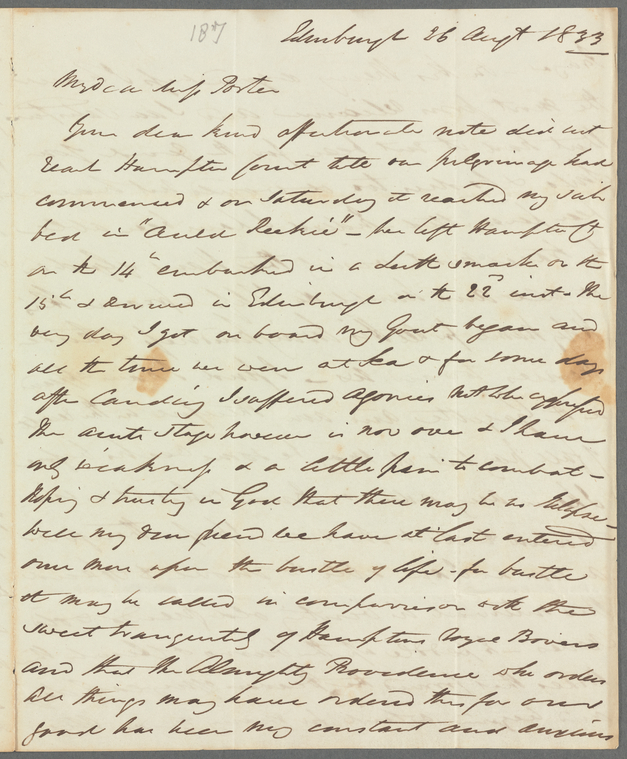 187
Edinburgh 26 Augt 1833
My dear Miss Porter
Your dear kind affectionate note did not
reach Hampton Court till our pilgrimage had
commenced & on Saturday it reached my sick
bed in "Auld Reekie" – we left Hampton Ct
on the 14th embarked in a Leith smack on the
15th & arrived in Edinburgh on the 22d inst. The
very day I got on board my Gout began and
all the time we were at Sea & for some days
after Landing I suffered agonies not to be expressed
The acute stage however is now over & I have
only weakness & a little pain to combat –
Hoping & trusting in God that there may be no relapse –
Well my dear friend we have at last entered
once more upon the bustle of life – for bustle
it may be called in comparison with the
sweet tranquility of Hamptons Royal Bowers
and that the Almighty Providence who orders
all things may have ordered this for our
good has been my constant and anxious